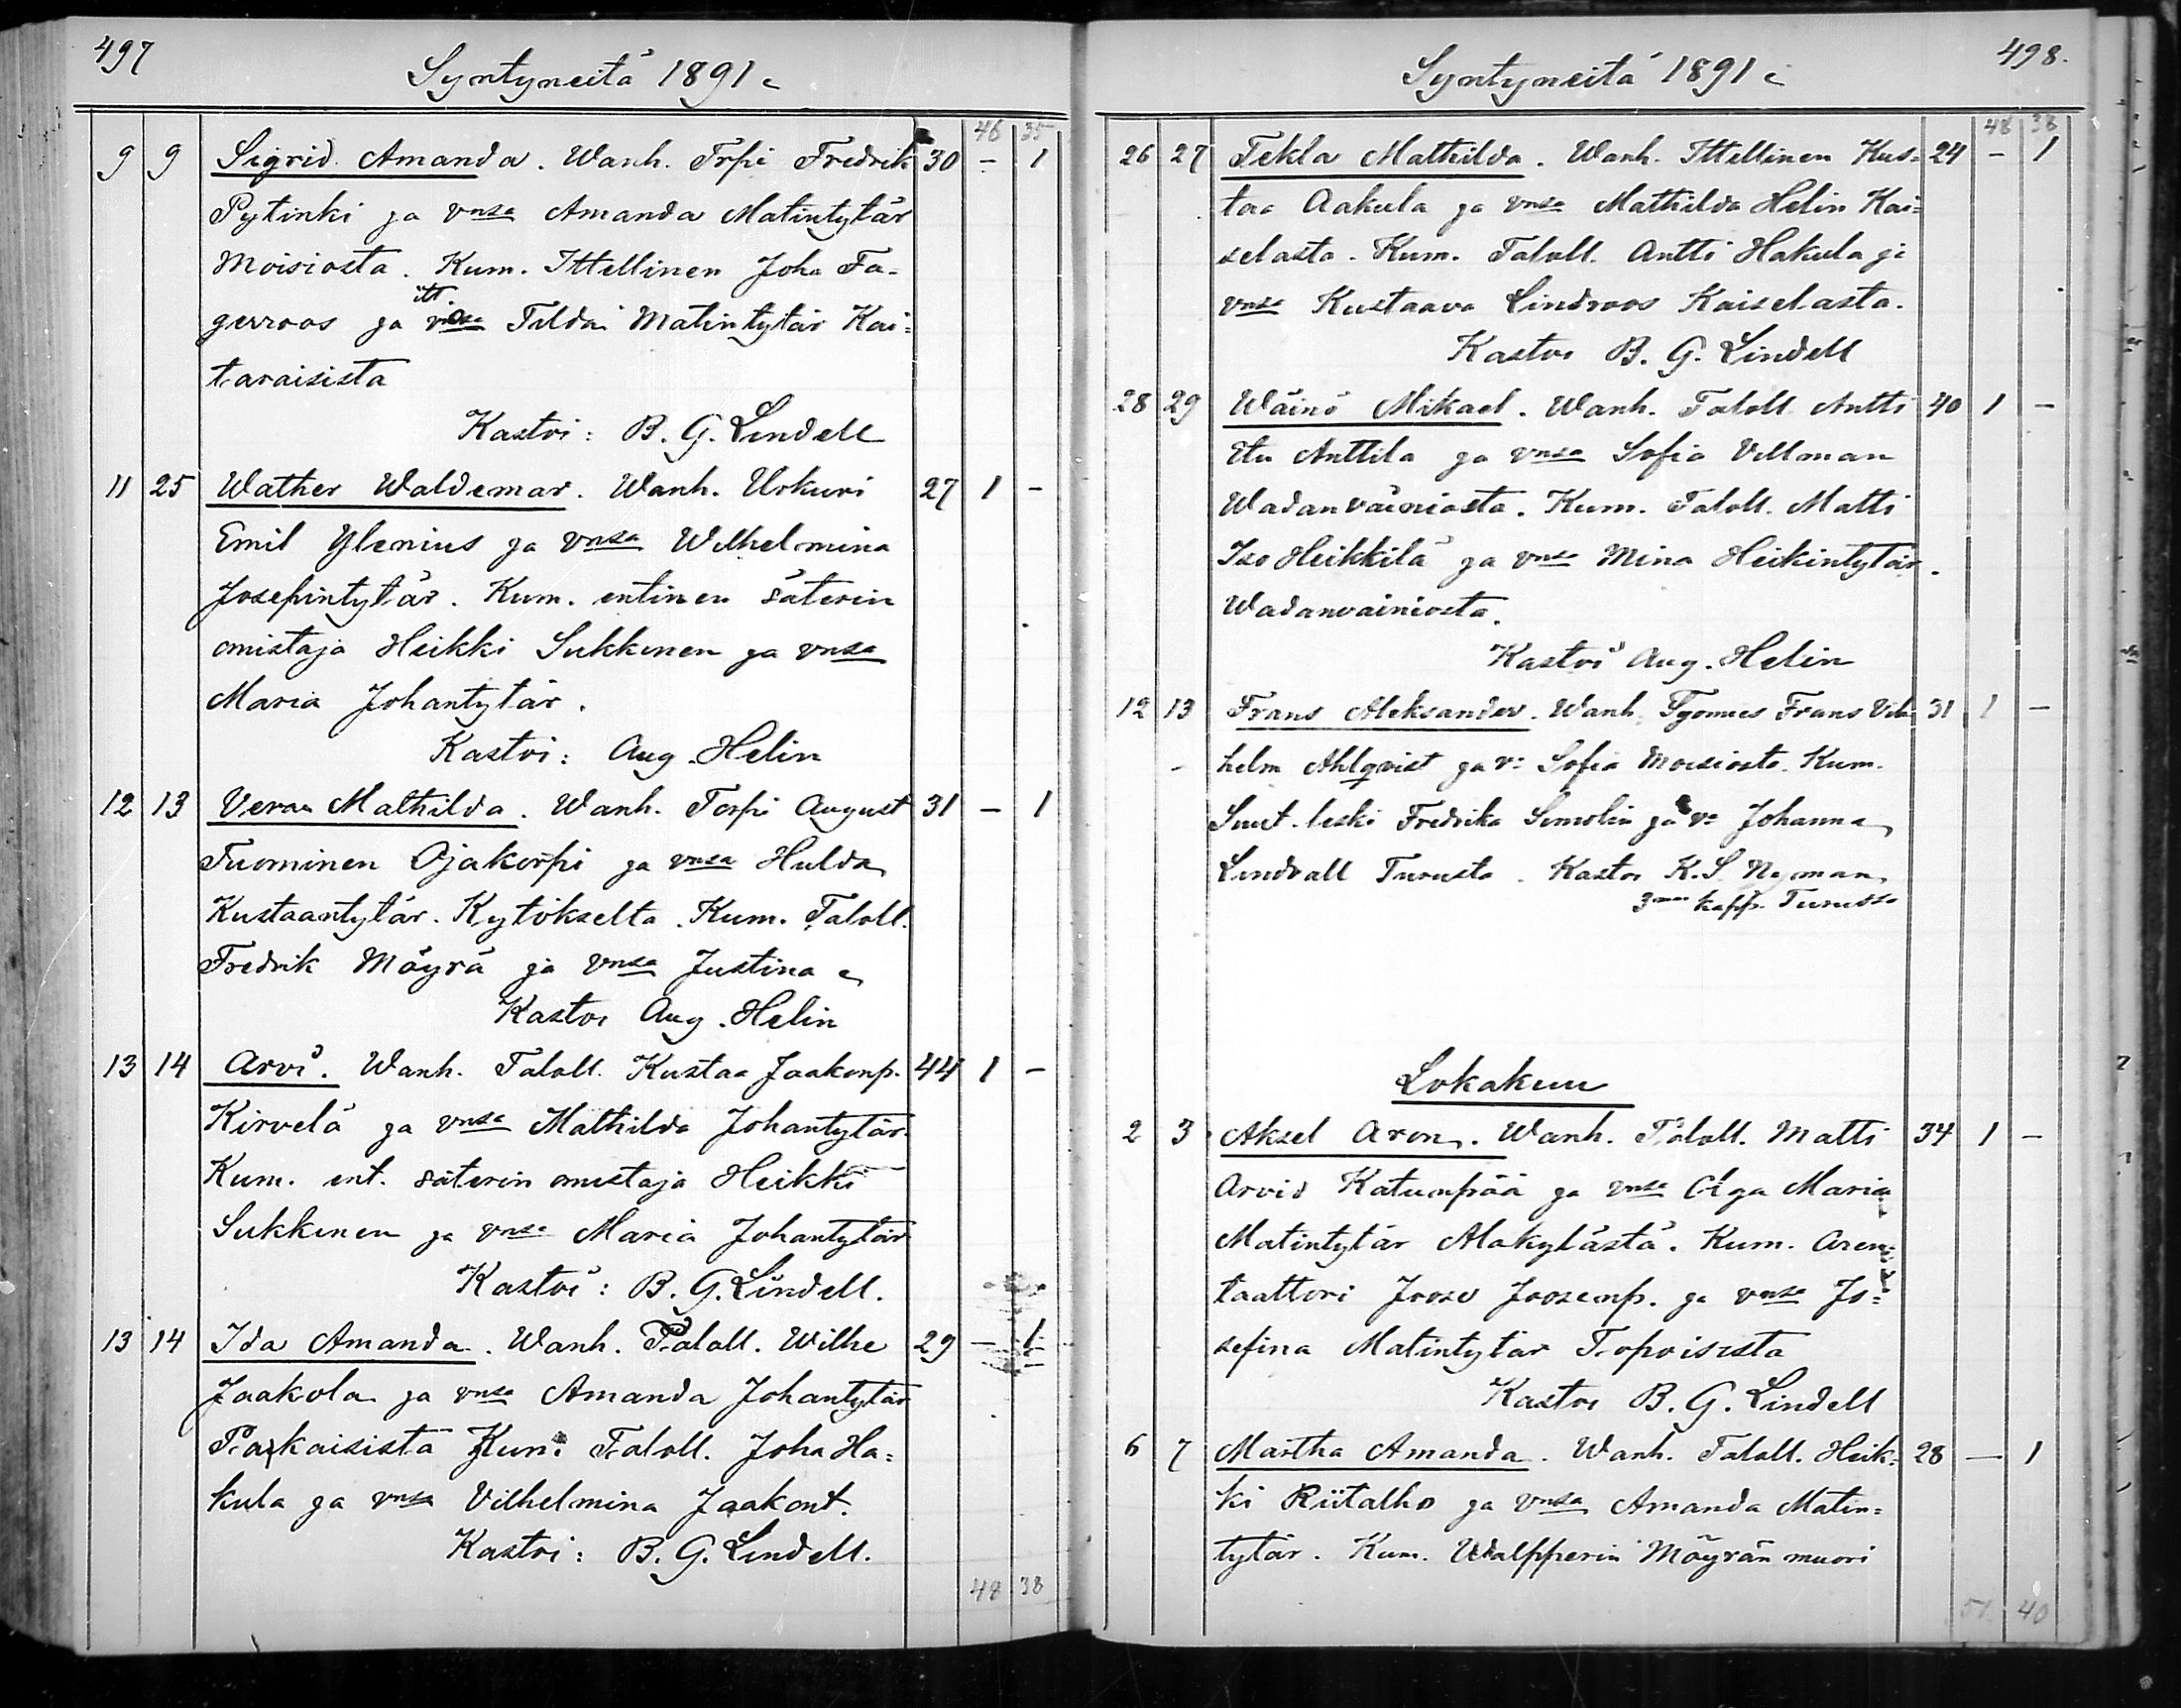 497
Syntyneitä 1891
46 35
9 9 Sigrid Amanda. Wanh. Trpi Fredrik 30 - 1
Pytinki ja vnsa Amanda Matintytär
Moisiosta. Kum. Ittellinen Joha Fa=
itt.
gerroos ja Tilda Matintytär Kai=
taraisista
Kastoi: B. G. Lindell
11 25 Wather Waldemar. Wanh. Urkuri 27 1 -
Emil Ylenius ja vnsa Wilhelmina
Josefintytär. Kum. entinen säterin
omistaja Heikki Sukkinen ja vnsa
Maria Johantytär.
Kastoi: Aug. Helin
12 13 Veraa Mathilda. Wanh. Torpi August 31 - 1
Tuominen Ojakorpi ja vnsa Hulda
Kustaantytär. Kytökseltä. Kum. Taloll.
Fredrik Mäyrä ja vnsa Justina
Kastoi Aug. Helin
13 14 Arvi. Wanh. Taloll. Kustaa Jaakonp. 44 1 -
Kirvelä ja vnsa Mathilda Johantytär.
Kum. ent. säterin omistaja Heikki
Sukkinen ja vnsa Maria Johantytär
Kastoi: B. G. Lindell.
13 14 Ida Amanda. Wanh. Taloll. Wilhe 29 - 1
Jaakola ja vnsa Amanda Johantytär
Kum. Taloll. Joha Ha=
kula ja vnsa Vilhelmina Jaakont.
Kastoi: B. G. Lindell.
48 38
498.
Syntyneitä 1891
48 38
26 27 Tekla Mathilda. Wanh. Ittellinen Kus= 24 - 1
taa Aakula ja vnsa Mathilda Helin Kai=
selasta. Kum. Taloll. Antti Hakula ja
vnsa Kustaava Lindroos Kaiselasta.
Kastoi B. G. Lindell
28 29 Wäinö Mikael. Wanh. Taloll. Antti 40 1 -
Etu Anttila ja vnsa Sofia Vellman
Wadanvainiosta. Kum. Taloll. Matti
Iso Heikkilä ja vnsa Mina Heikintytär.
Wadanvainiosta.
Kastoi Aug. Helin
12 13 Frans Aleksander. Wanh. Työmies Frans Vil= 31 1 -
helm Ahlqvist ja v: Sofia Moisiosta. Kum.
leski Fredrika ja Johanna
Lindvall Turusta. Kastoi K. S. Nyman
kapp. Turussa
Lokakuu
2 3 Aksel Aron. Wanh. Taloll. Matti 34 1 -
Arvid Katunpää ja vnsa Olga Maria
Matintytär Alakylästä. Kum. Aren=
taattori Joose Joosenp. ja vnsa Jo=
sefina Matintytär Topoisista
Kastoi B. G. Lindell
6 7 Martha Amanda. Wanh. Taloll. Heik= 28 - 1
ki Riitalho ja vnsa Amanda Matin=
tytär. Kum. Walpperin Mäyrän muori
51 40